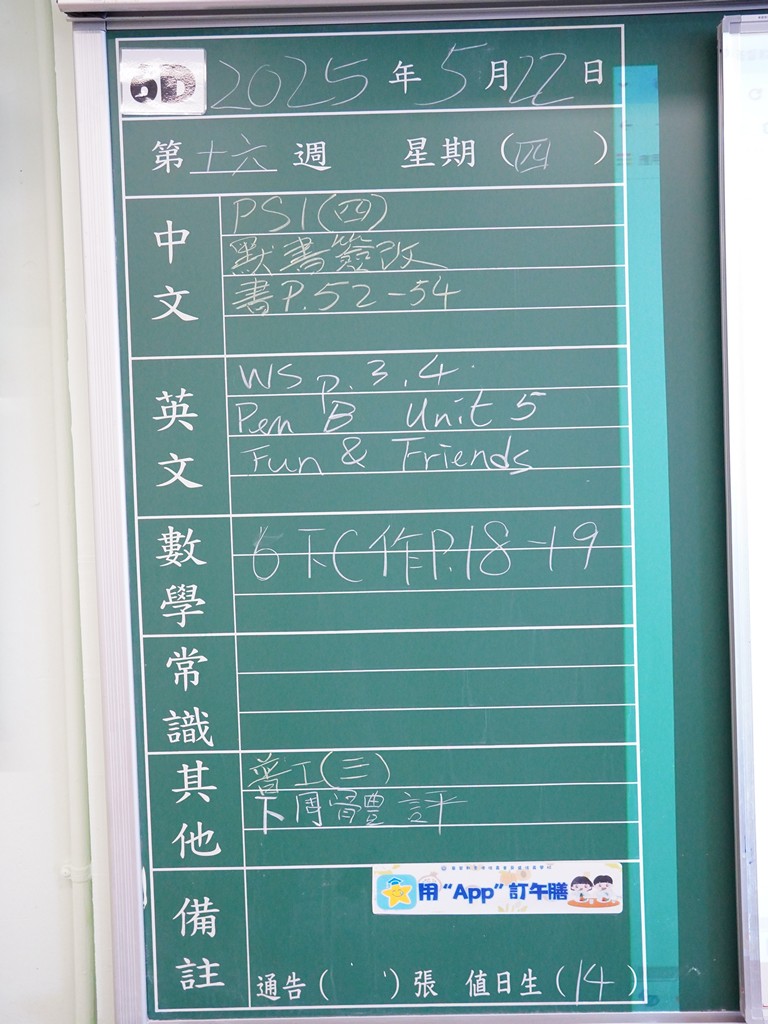 6D 2025年5月22日
第十六週 星期(四)
中文
PS1(四)
默書簽改
書P.52-54
英文
WS p.3,4
Pen B Unit 5
Fun & Friends
數學
6下C作P.18-19
常識
其他
普工(三)
下周體評
備註
用“App”訂午膳
通告( )張 值日生(14)